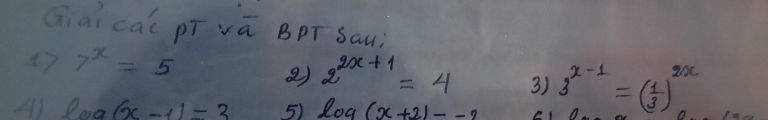 Giải các PT và BPT sau:
1) 7^x = 5 2) 2^{2x+1} = 4 3) 3^{x-1} = (1/3)^{2x}
4) log(x-1) = 3 5) log(x+2) =